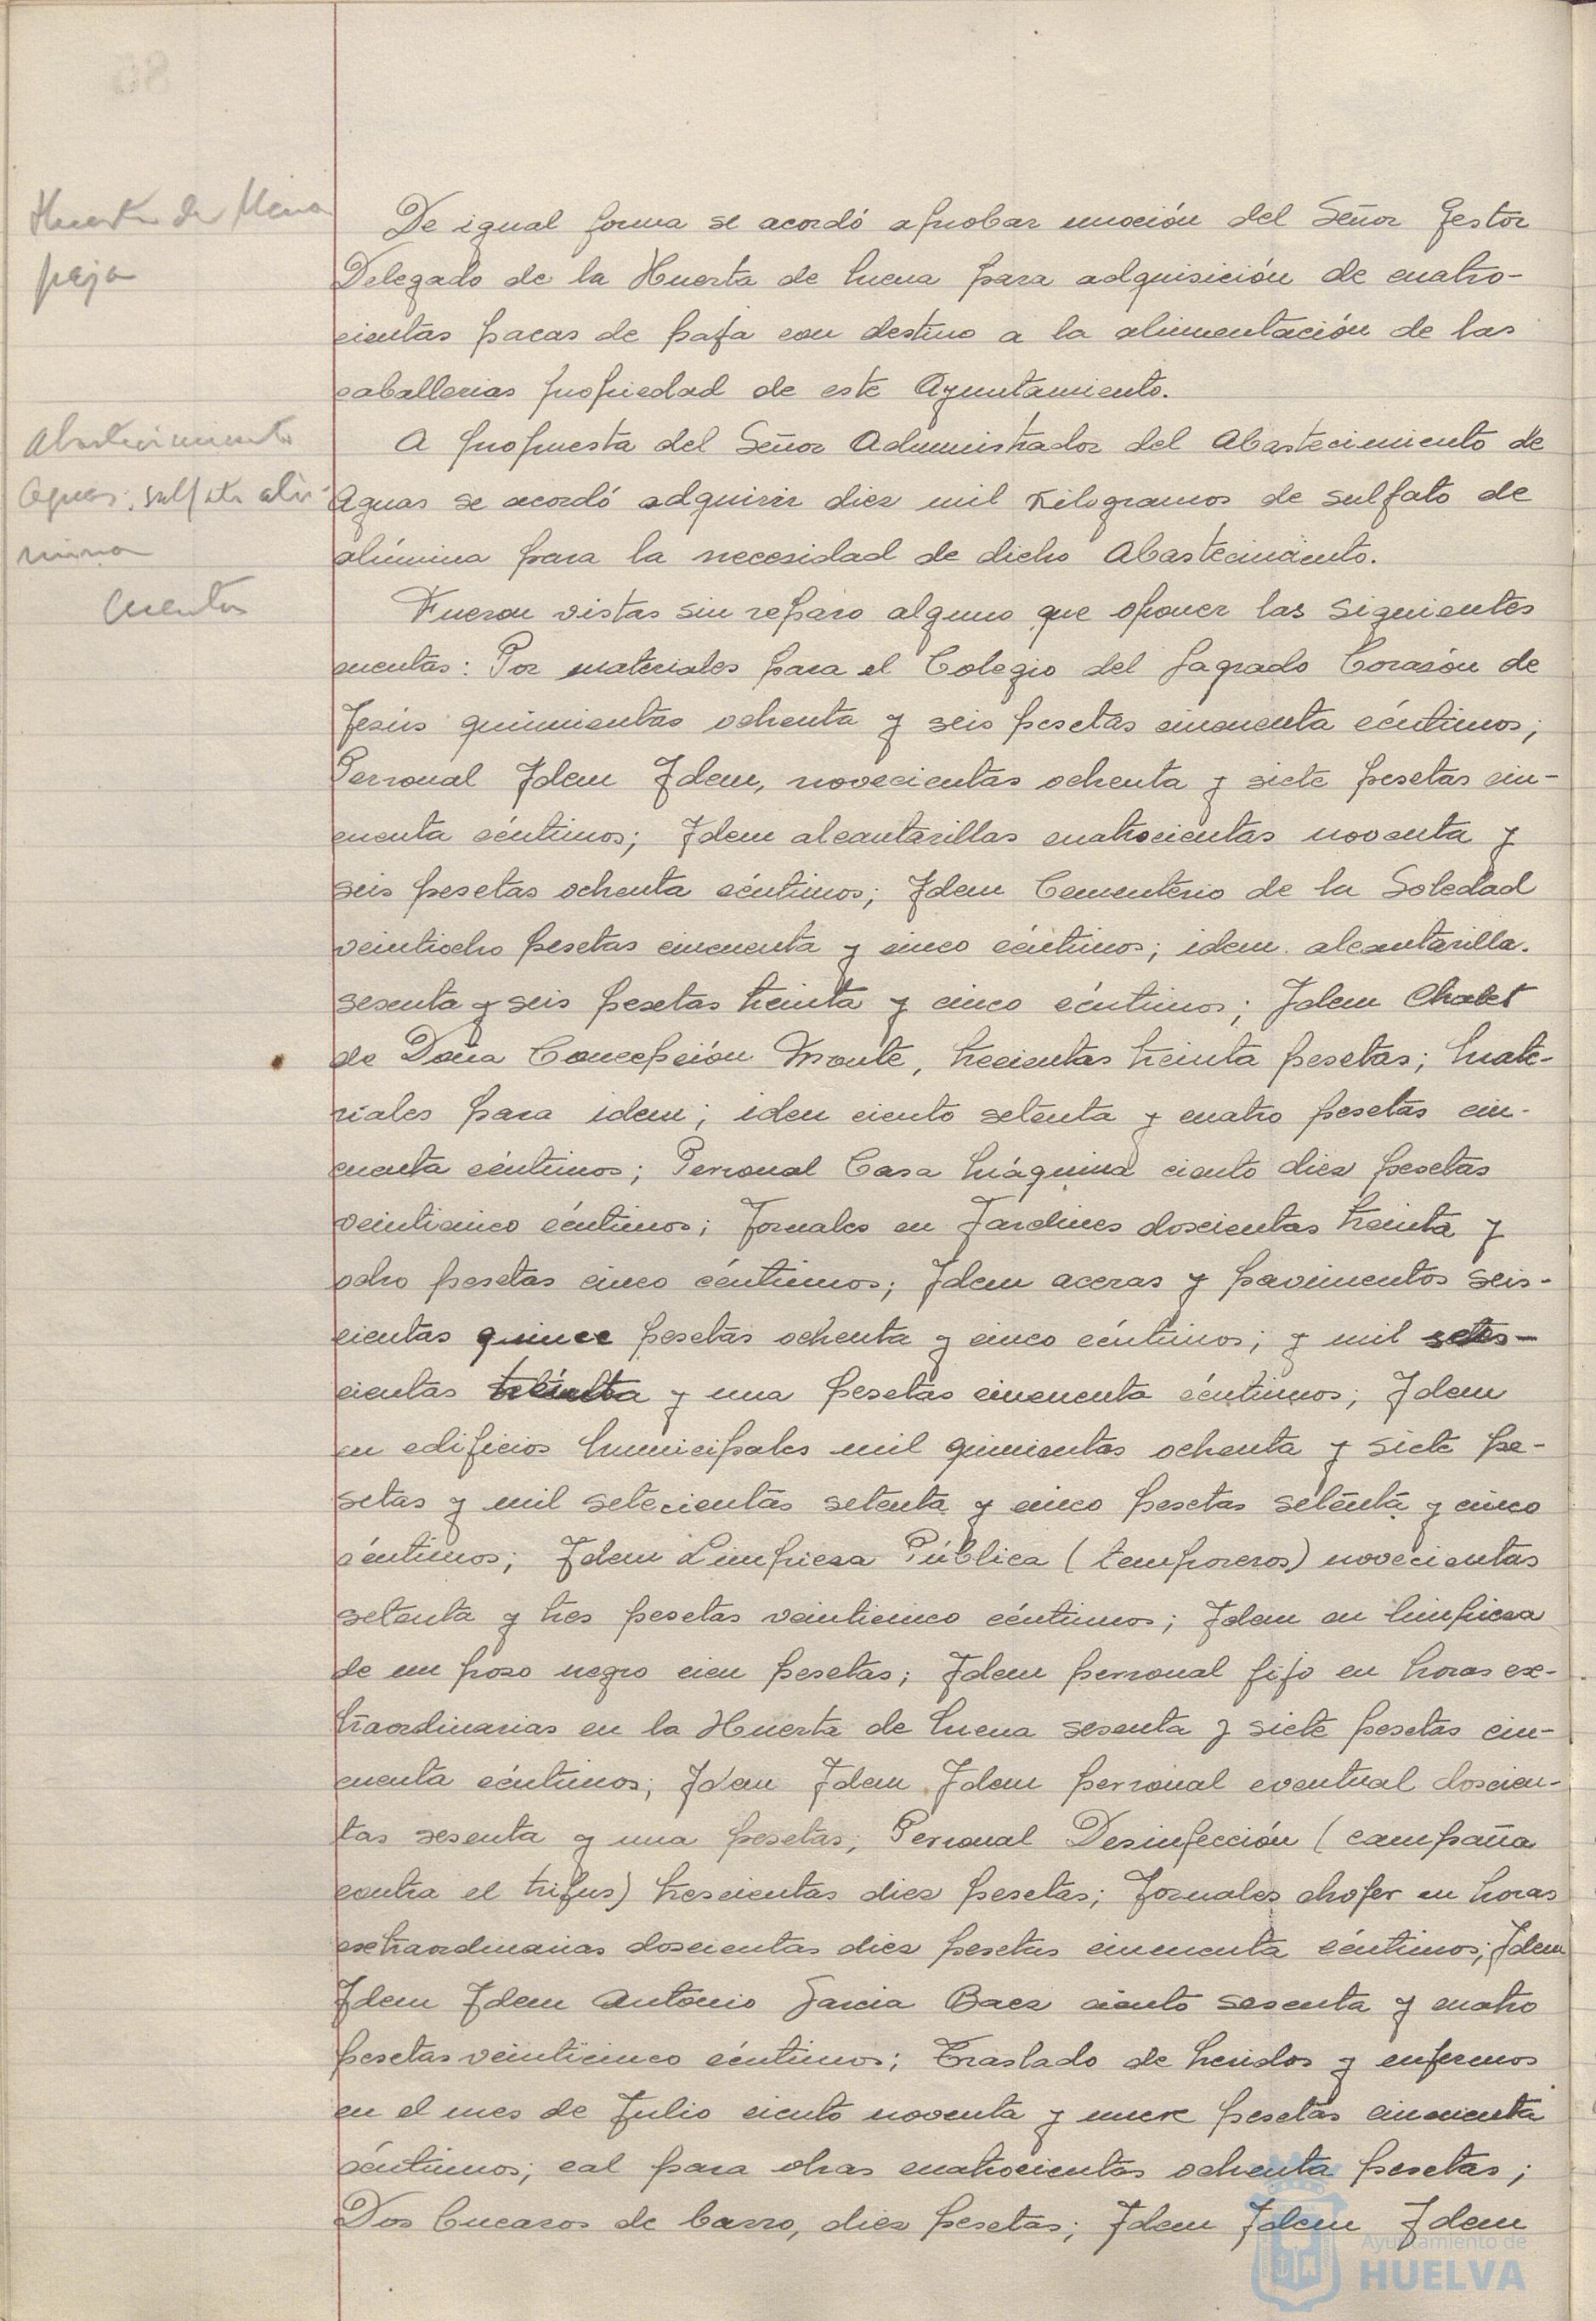 Huerta de Mena
paja
De igual forma se acordó aprobar moción del Señor Gestor
Delegado de la Huerta de Mena para adquisición de cuatro-
cientas pacas de paja con destino a la alimentación de las
caballerias propiedad de este Ayuntamiento.
Abastecimiento
Aguas, sulfato alú-
mina
A propuesta del Señor Administrador del Abastecimiento de
Aguas se acordó adquirir diez mil Kilogramos de sulfato de
alúmina para la necesidad de dicho Abastecimiento.
Cuentas
Fueron vistas sin reparo alguno que oponer las siguientes
cuentas: Por materiales para el Colegio del Sagrado Corazón de
Jesús quinientas ochenta y seis pesetas cincuenta céntimos;
Personal Idem Idem, novecientas ochenta y siete pesetas cin-
cuenta céntimos; Idem alcantarillas cuatrocientas noventa y
seis pesetas ochenta céntimos; Idem Cementerio de la Soledad
veintiocho pesetas cincuenta y cinco céntimos; idem. alcantarilla.
sesenta y seis pesetas treinta y cinco céntimos; Idem Chalet
de Doña Concepción Monte, trecientas treinta pesetas; Mate-
riales para idem; iden ciento setenta y cuatro pesetas cin-
cuenta céntimos; Personal Casa Máquina ciento diez pesetas
veinticinco céntimos; Jornales en Jardines doscientas treinta y
ocho pesetas cinco céntimos; Idem aceras y pavimentos seis-
cientas quince pesetas ochenta y cinco céntimos; y mil
cientas treinta y una pesetas cincuenta céntimos; Idem
en edificios Municipales mil quinientas ochenta y siete pe-
setas y mil setecientas setenta y cinco pesetas setenta y cinco
céntimos; Idem Limpieza Pública (temporeros) novecientas
setenta y tres pesetas veinticinco céntimos; Idem en limpieza
de un pozo negro cien pesetas; Idem personal fijo en horas ex-
traordinarias en la Huerta de Mena sesenta y siete pesetas cin-
cuenta céntimos; Idem Idem Idem personal eventual doscien-
tas sesenta y una pesetas; Personal Desinfección (campaña
contra el trifus) trescientas diez pesetas; Jornales chofer en horas
extraordinarias doscientas diez pesetas cincuenta céntimos; Idem
Idem Idem Antonio Garcia Baez ciento sesenta y cuatro
pesetas veinticinco céntimos; Traslado de heridos y enfermos
en el mes de Julio ciento noventa y nueve pesetas cincuenta
céntimos; cal para obras cuatrocientas ochenta pesetas;
Dos Bucaros de barro, diez pesetas; Idem Idem Idem
Ayuntamiento de
HUELVA